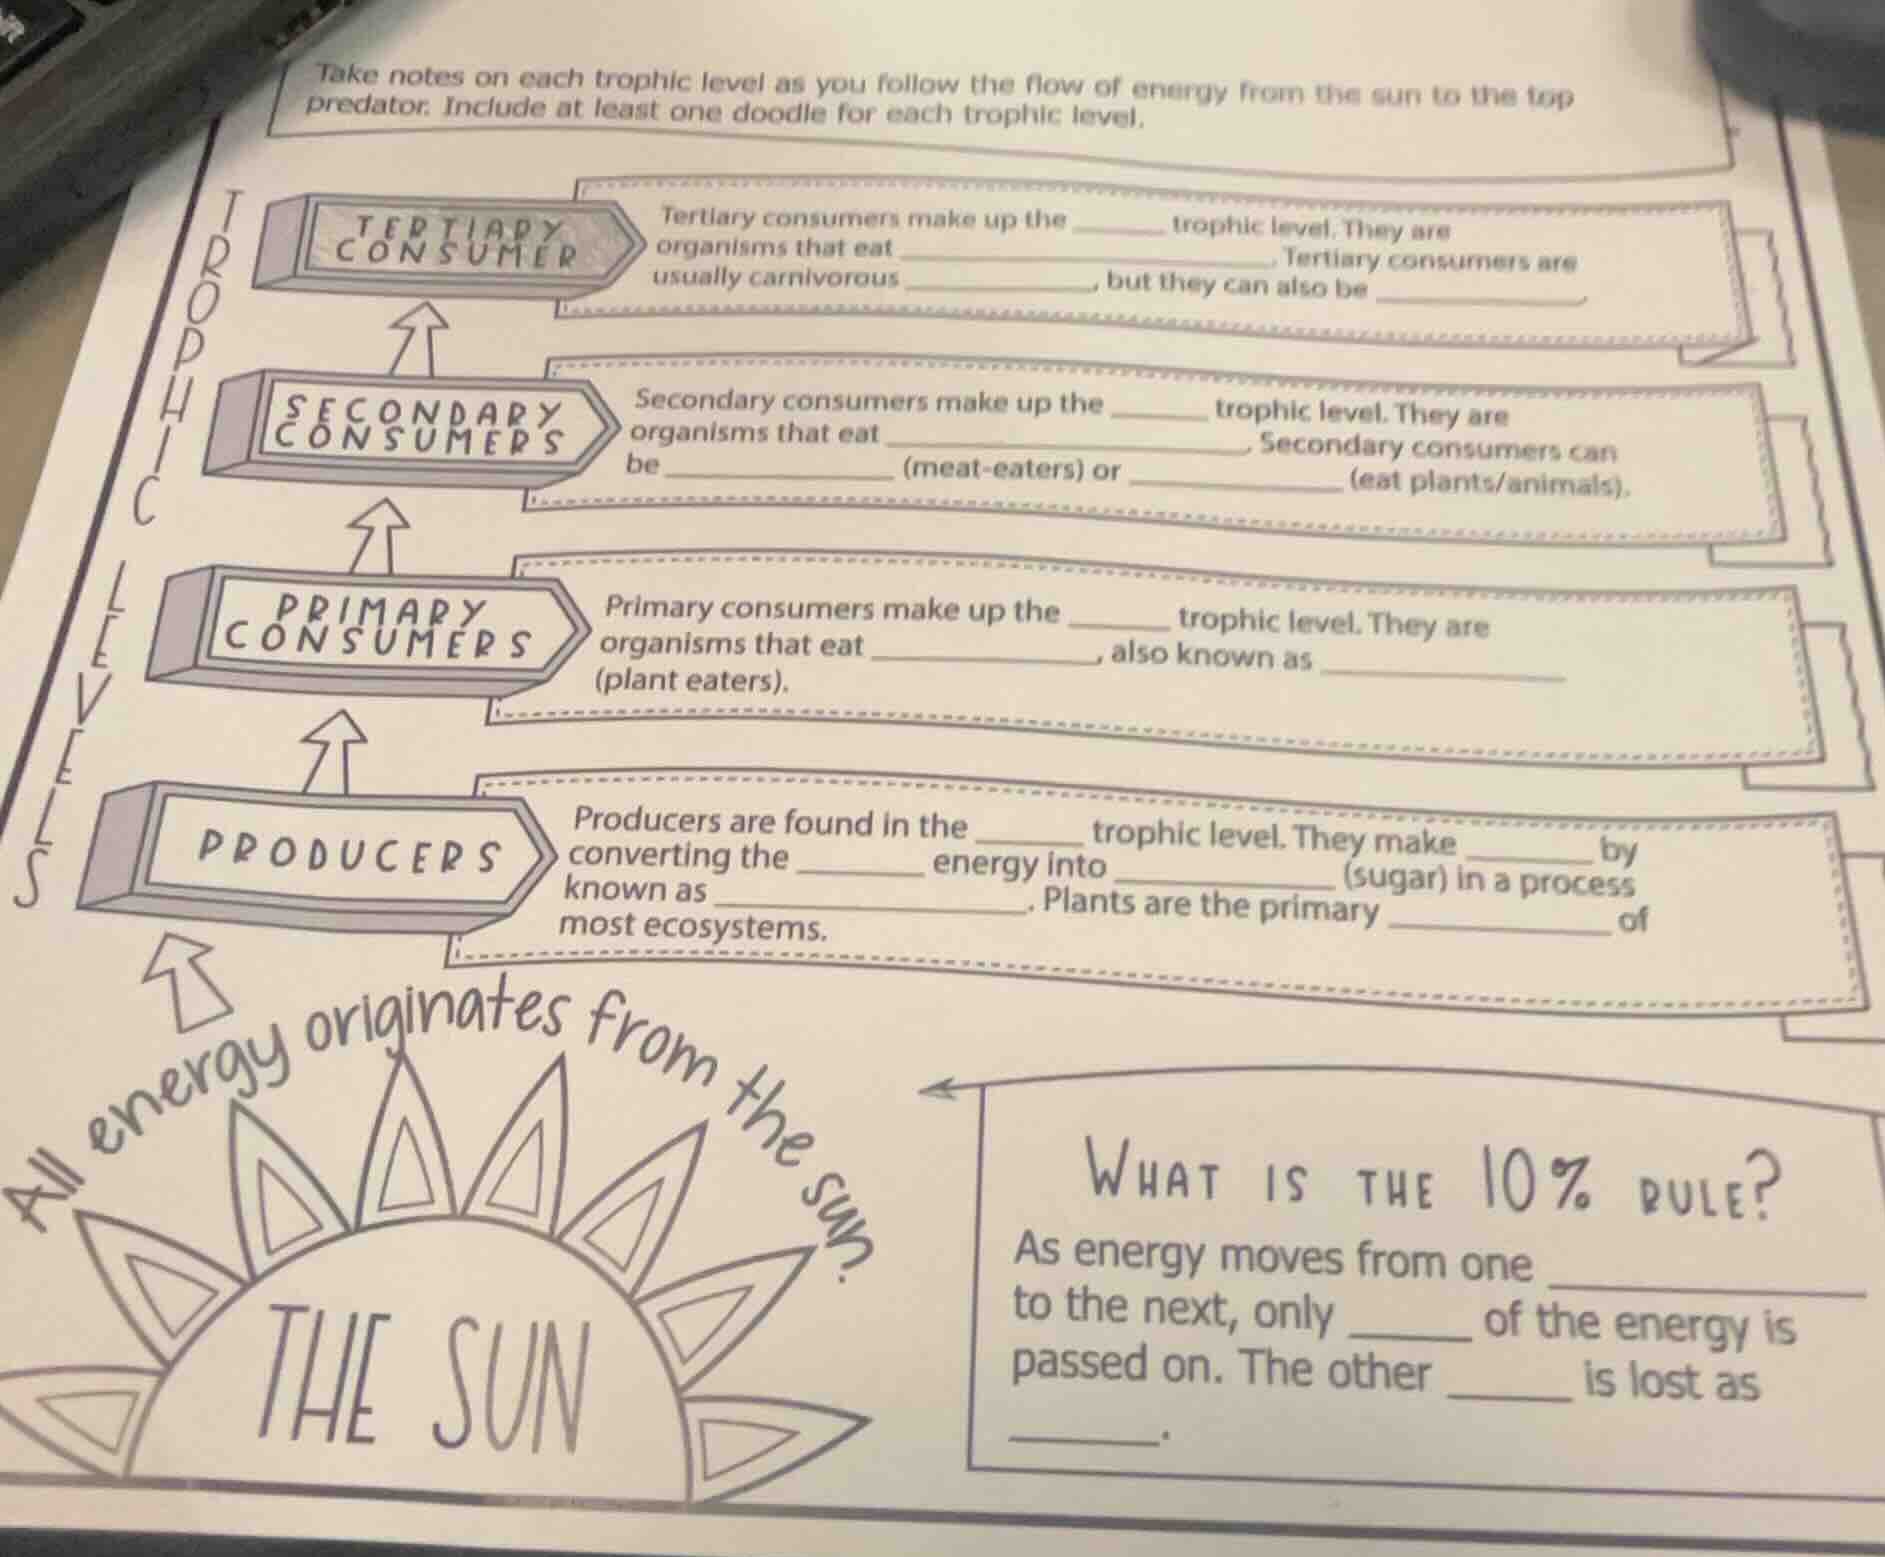 Take notes on each trophic level as you follow the flow of energy from the sun to the top
predator. Include at least one doodle for each trophic level.
TROPHIC LEVELS
TERTIARY
CONSUMER
Tertiary consumers make up the ______ trophic level. They are
organisms that eat ______________________. Tertiary consumers are
usually carnivorous ____________, but they can also be _____________.
SECONDARY
CONSUMERS
Secondary consumers make up the ______ trophic level. They are
organisms that eat ______________________. Secondary consumers can
be ______________ (meat-eaters) or _____________ (eat plants/animals).
PRIMARY
CONSUMERS
Primary consumers make up the ______ trophic level. They are
organisms that eat ______________, also known as _______________
(plant eaters).
PRODUCERS
Producers are found in the ______ trophic level. They make _______ by
converting the _______ energy into _____________ (sugar) in a process
known as __________________. Plants are the primary _____________ of
most ecosystems.
All energy originates from the sun.
THE SUN
WHAT IS THE 10% RULE?
As energy moves from one ______________
to the next, only _____ of the energy is
passed on. The other _____ is lost as
______.